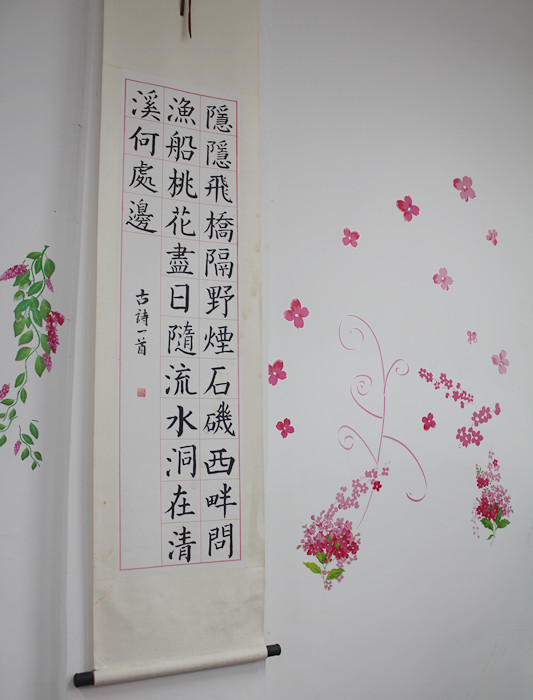 隱隱飛橋隔野煙石磯西畔問
漁船桃花盡日隨流水洞在清
溪何處邊
古詩一首